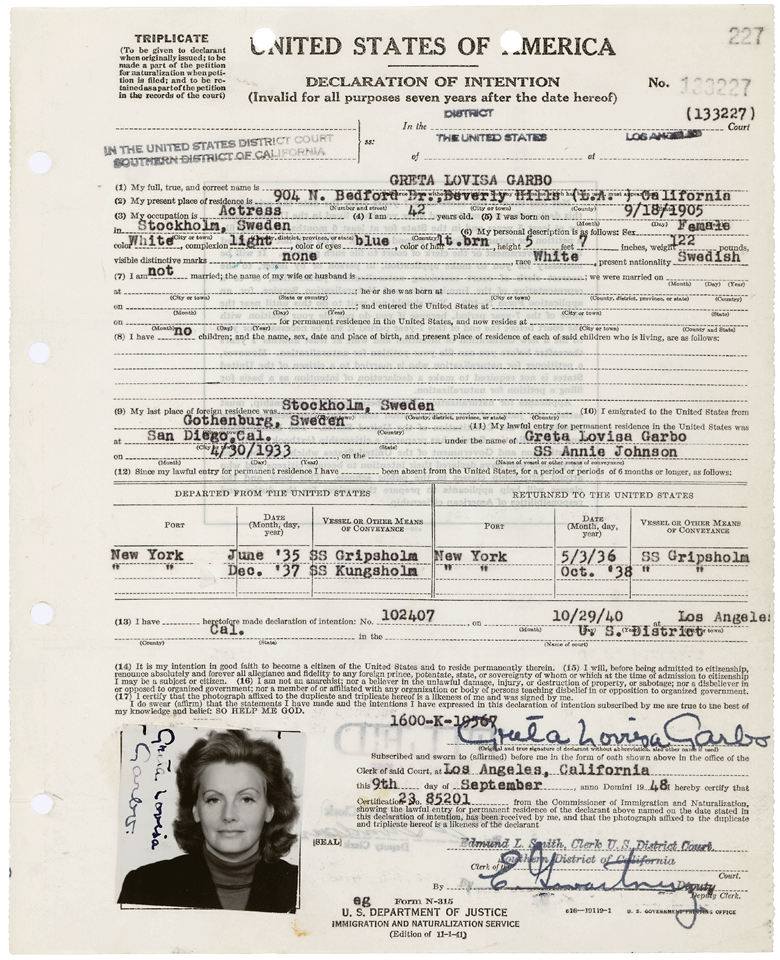 227
TRIPLICATE
(To be given to declarant
when originally issued; to be
made a part of the petition
for naturalization when peti-
tion is filed; and to be re-
tained as a part of the petition
in the records of the court)
UNITED STATES OF AMERICA
DECLARATION OF INTENTION
(Invalid for all purposes seven years after the date hereof)
No. 133227
(133227)
IN THE UNITED STATES DISTRICT COURT
SOUTHERN DISTRICT OF CALIFORNIA
ss:
DISTRICT
In the Court
THE UNITED STATES LOS ANGELES
of at
(1) My full, true, and correct name is GRETA LOVISA GARBO
(2) My present place of residence is 904 N. Bedford Dr., Beverly Hills (L.A.) California
(Number and street) (City or town) (County) (State)
(3) My occupation is Actress (4) I am 42 years old. (5) I was born on 9/18/1905
(Month) (Day) (Year)
in Stockholm, Sweden (6) My personal description is as follows: Sex Female
(City or town) (County, district, province, or state) (Country)
color White complexion light color of eyes blue color of hair lt.brn height 5 feet 7 inches, weight 122 pounds,
visible distinctive marks none race White, present nationality Swedish
(7) I am not married; the name of my wife or husband is ; we were married on
(Month) (Day) (Year)
at ; he or she was born at
(City or town) (State or country) (City or town) (County, district, province, or state) (Country)
on ; and entered the United States at
(Month) (Day) (Year) (City or town) (State)
on for permanent residence in the United States, and now resides at
(Month) (Day) (Year) (City or town) (County and State)
(8) I have no children; and the name, sex, date and place of birth, and present place of residence of each of said children who is living, are as follows:
(9) My last place of foreign residence was Stockholm, Sweden (10) I emigrated to the United States from
(City or town) (County, district, province, or state) (Country)
Gothenburg, Sweden (11) My lawful entry for permanent residence in the United States was
(Country)
at San Diego, Cal. under the name of Greta Lovisa Garbo
(City or town) (State)
on 4/30/1933 on the SS Annie Johnson
(Month) (Day) (Year) (Name of vessel or other means of conveyance)
(12) Since my lawful entry for permanent residence I have been absent from the United States, for a period or periods of 6 months or longer, as follows:
DEPARTED FROM THE UNITED STATES RETURNED TO THE UNITED STATES
PORT DATE (Month, day, year) VESSEL OR OTHER MEANS OF CONVEYANCE PORT DATE (Month, day, year) VESSEL OR OTHER MEANS OF CONVEYANCE
New York June '35 SS Gripsholm New York 5/3/36 SS Gripsholm
" " Dec. '37 SS Kungsholm " " Oct. '38 " "
(13) I have heretofore made declaration of intention: No. 102407, on 10/29/40 at Los Angeles
(Month) (Day) (Year) (City or town)
Cal. in the U. S. District
(County) (State) (Name of court)
(14) It is my intention in good faith to become a citizen of the United States and to reside permanently therein. (15) I will, before being admitted to citizenship,
renounce absolutely and forever all allegiance and fidelity to any foreign prince, potentate, state, or sovereignty of whom or which at the time of admission to citizenship
I may be a subject or citizen. (16) I am not an anarchist; nor a believer in the unlawful damage, injury, or destruction of property, or sabotage; nor a disbeliever in
or opposed to organized government; nor a member of or affiliated with any organization or body of persons teaching disbelief in or opposition to organized government.
(17) I certify that the photograph affixed to the duplicate and triplicate hereof is a likeness of me and was signed by me.
I do swear (affirm) that the statements I have made and the intentions I have expressed in this declaration of intention subscribed by me are true to the best of
my knowledge and belief: SO HELP ME GOD.
1600-K-19567
Greta Lovisa Garbo
(Original and true signature of declarant without abbreviation, also other name if used)
Subscribed and sworn to (affirmed) before me in the form of oath shown above in the office of the
Clerk of said Court, at Los Angeles, California
this 9th day of September, anno Domini 1948. I hereby certify that
Certification No. 23 85201 from the Commissioner of Immigration and Naturalization,
showing the lawful entry for permanent residence of the declarant above named on the date stated in
this declaration of intention, has been received by me, and that the photograph affixed to the duplicate
and triplicate hereof is a likeness of the declarant
Greta Lovisa
Garbo.
[SEAL]
Edmund L. Smith, Clerk U.S. District Court.
Southern District of California
Clerk of the Court.
By Deputy
Deputy Clerk.
eg Form N-315
U. S. DEPARTMENT OF JUSTICE
IMMIGRATION AND NATURALIZATION SERVICE
(Edition of 11-1-41)
c16—19119-1 U. S. GOVERNMENT PRINTING OFFICE